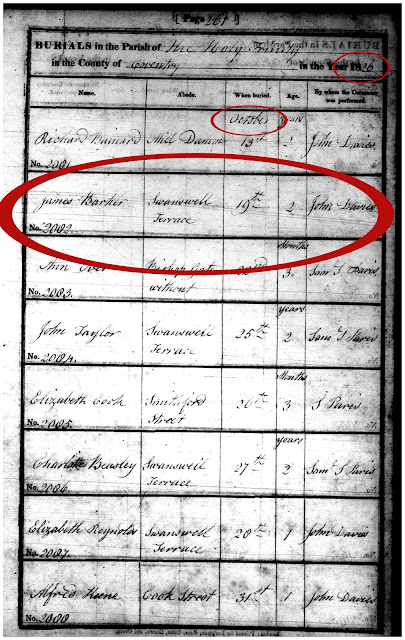 [ Page 261 ]
BURIALS in the Parish of The Holy Trinity
in the County of Coventry in the Year 1826
Name. Abode. When buried. Age. By whom the Ceremony was performed.
October years
Richard Mill Damm 13th John Davies
No. 2001.
James Barker Swanswell Terrace 19th 2 John Davies
No. 2002.
Months
Ann Over Bishop Gate without 22nd 3 Saml S Paris
No. 2003.
years
John Taylor Swanswell Terrace 25th 2 Saml S Paris
No. 2004.
Months
Elizabeth Cook Smithford Street 26th 3 S Paris
No. 2005.
years
Charlotte Beasley Swanswell Terrace 27th 2 Saml S Paris
No. 2006.
Elizabeth Reynolds Swanswell Terrace 28th 1 John Davies
No. 2007.
Alfred Keene Cook Street 31st 1 John Davies
No. 2008